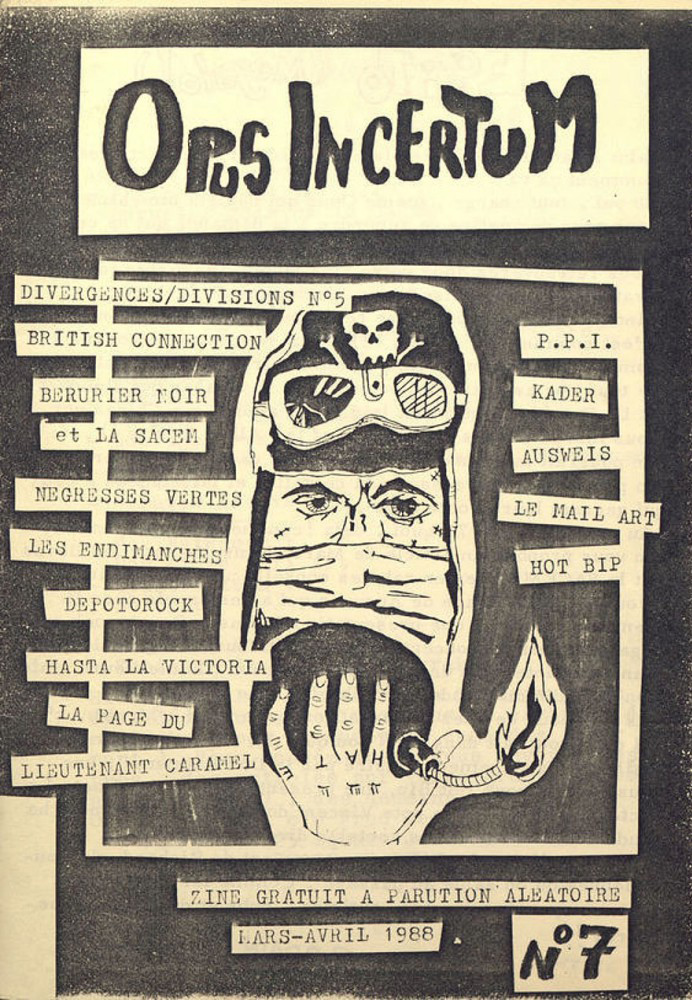 OPUS INCERTUM
DIVERGENCES/DIVISIONS N°5
BRITISH CONNECTION
BERURIER NOIR
et LA SACEM
NEGRESSES VERTES
LES ENDIMANCHES
DEPOTOROCK
HASTA LA VICTORIA
LA PAGE DU
LIEUTENANT CARAMEL
P.P.I.
KADER
AUSWEIS
LE MAIL ART
HOT BIP
ZINE GRATUIT A PARUTION ALEATOIRE
MARS-AVRIL 1988
N°7